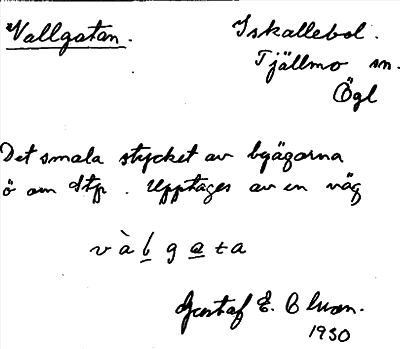 Vallgatan.
Iskallebol.
Tjällmo sn.
Ögl
Det smala stycket av byägorna
ö om Stp. Upptages av en väg
vàlgata
Gustaf E. Olson.
1930